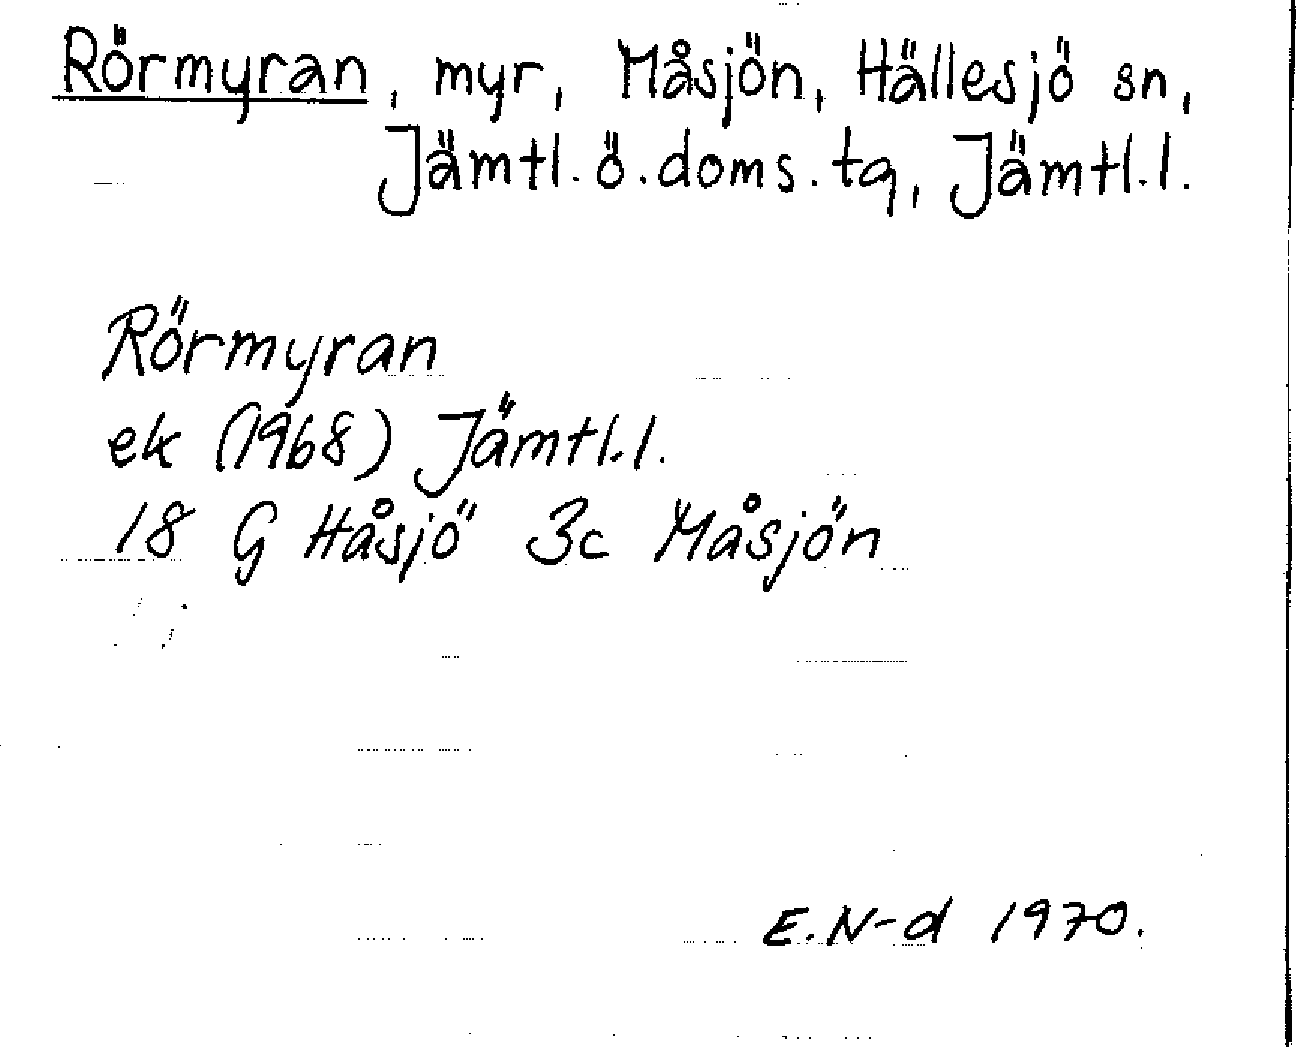 Rörmyran, myr, Måsjön, Hällesjö sn,
Jämtl. ö. doms. tg, Jämtl. l.
Rörmyran
ek (1968) Jämtl. l.
18 G Håsjö 3c Måsjön
E. N-d 1970.